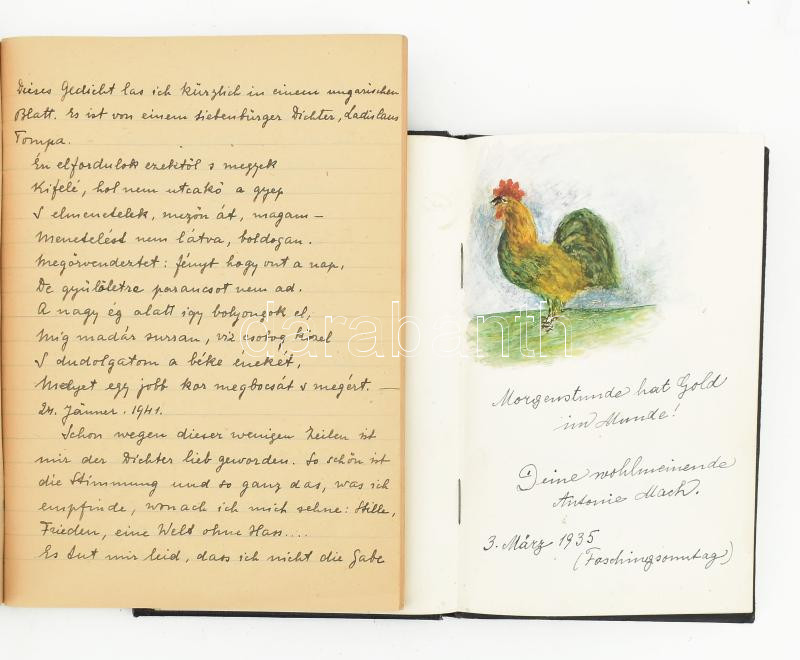 Dieses Gedicht las ich kürzlich in einem ungarischen
Blatt. Es ist von einem siebenbürger Dichter, Ladislaus
Tompa.
Én elfordulok ezektől s megyek
Kifelé, hol nem utcakő a gyep
S elmenetelek, mezőn át, magam –
Menetelést nem látva, boldogan.
Megörvendeztet: fényt hogy ont a nap,
De gyűlöletre parancsot nem ad.
A nagy ég alatt így bolyongok el,
Míg madár surran, víz csobog közel
S dudolgatom a béke énekét,
Melyet egy jobb kor megbocsát s megért. –
24. Jänner. 1941.
Schon wegen dieser wenigen Zeilen ist
mir der Dichter lieb geworden. So schön ist
die Stimmung und so ganz das, was ich
empfinde, wonach ich mich sehne: Stille,
Frieden, eine Welt ohne Hass....
Es tut mir leid, dass ich nicht die Gabe
darabanth
Morgenstunde hat Gold
im Munde!
Deine wohlmeinende
Antonie Mach.
3. März 1935
(Faschingsonntag)